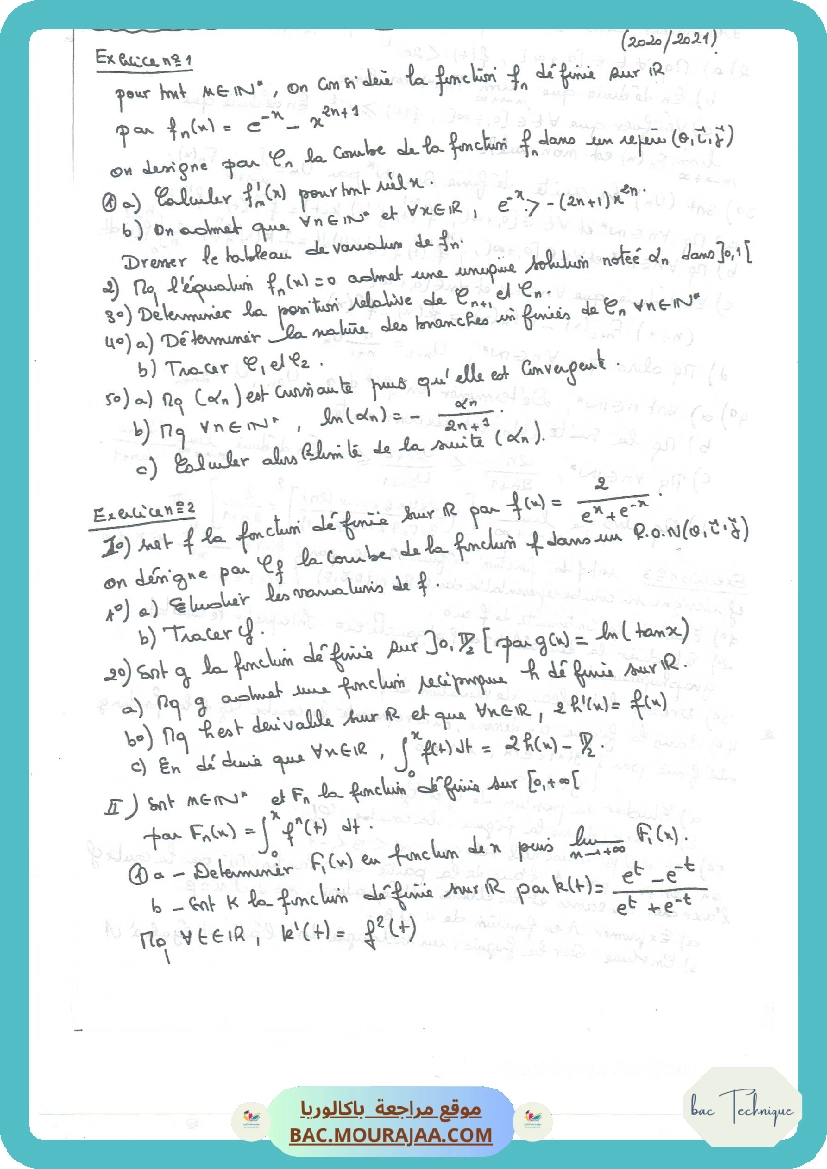 (2020/2021)
Exercice n=1
pour tout n∈IN*, on considère la fonction fn définie sur IR
par fn(x) = e^-x - x^2n+1
on designe par Cn la courbe de la fonction f dans un repère (O,i,j)
① a) Calculer f'n(x) pour tout réel x.
b) On admet que ∀n∈IN* et ∀x∈IR, e^-x > -(2n+1)x^2n.
Dresser le tableau de variation de fn.
2) Mq l'équation fn(x)=0 admet une unique solution notée αn dans ]0,1[
3°) Déterminer la position relative de Cn+1 et Cn.
4°) a) Déterminer la nature des branches infinies de Cn ∀n∈IN*
b) Tracer C1 et C2.
5°) a) Mq (αn) est croissante puis qu'elle est convergent.
b) Mq ∀n∈IN*, ln(αn) = - αn/2n+1.
c) Calculer alors la limite de la suite (αn).
Exercice n=2
I°) soit f la fonction définie sur IR par f(x) = 2/e^x+e^-x.
on désigne par Cf la courbe de la fonction f dans un R.O.N(O,i,j)
1°) a) Etudier les variations de f.
b) Tracer Cf.
2°) Soit g la fonction définie sur ]0,π/2[ par g(x) = ln(tanx)
a) Mq g admet une fonction reciproque h définie sur IR.
b°) Mq h est derivable sur IR et que ∀x∈IR, 2h'(x) = f(x)
c) En déduire que ∀x∈IR, ∫0^x f(t)dt = 2h(x) - π/2.
II) Soit n∈IN* et Fn la fonction définie sur [0,+∞[
par Fn(x) = ∫0^x f^n(t) dt.
① a - Determiner F1(x) en fonction de x puis lim x→+∞ F1(x).
b - Soit k la fonction définie sur IR par k(t) = e^t - e^-t/e^t + e^-t
Mq ∀t∈IR, k'(t) = f²(t)
موقع مراجعة باكالوريا
BAC.MOURAJAA.COM
bac Technique